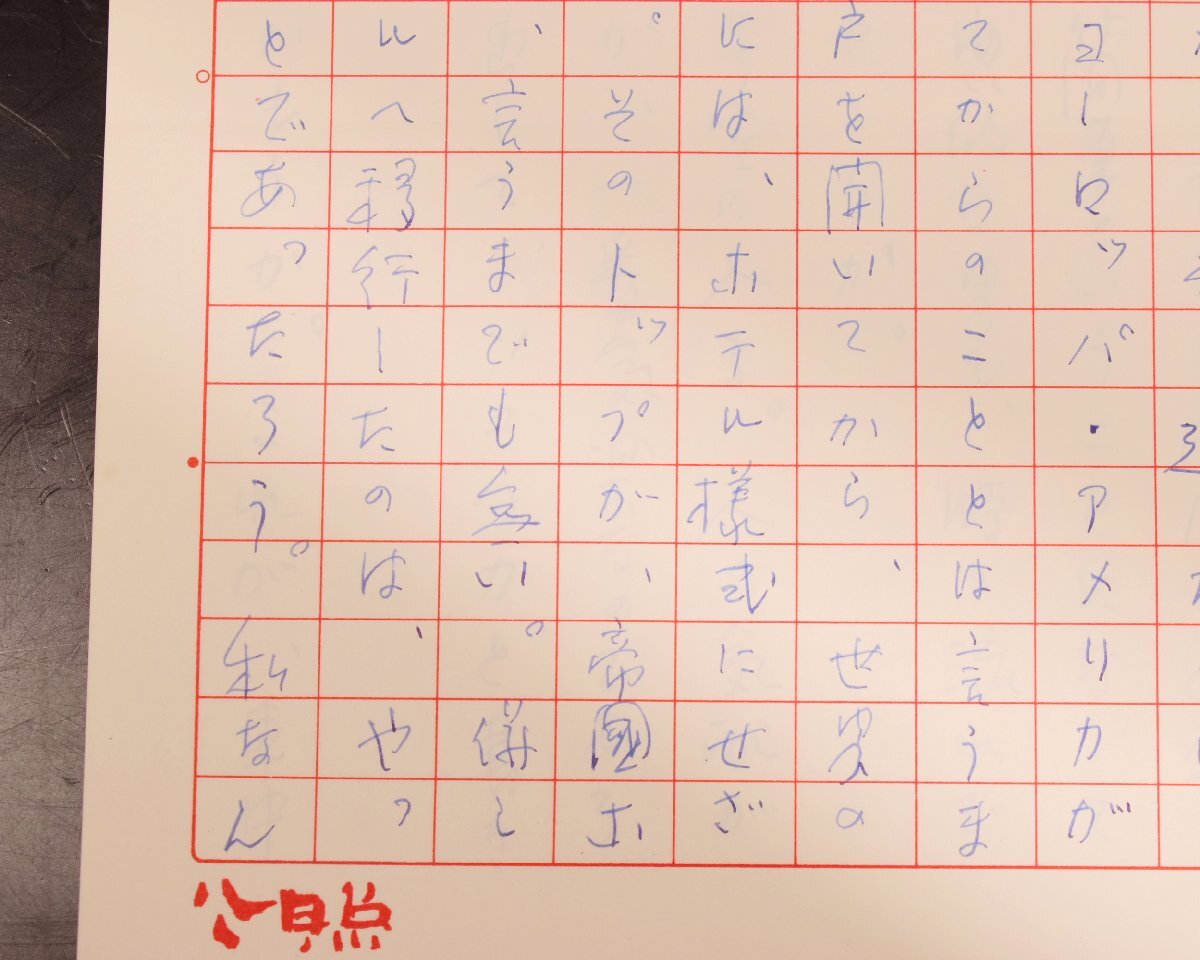 ヨーロッパ・アメリカが
てからのこととは言うま
戸を開いてから、世界の
には、ホテル様式にせざ
。そのトップが、帝國ホ
、言うまでも無い。併し
ルへ移行したのは、やっ
とであったろう。私なん